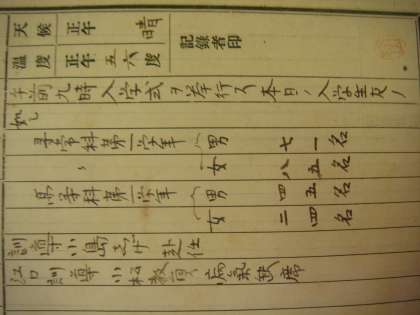 天候 正午 晴
温度 正午 五六度
記録者印
午前九時入学式ヲ挙行ス本日ノ入学生左ノ
如シ
尋常科第一学年 男 七一名
〃 女 八五名
高等科第一学年 男 四五名
女 二四名
訓導小島 赴任
江口訓導小松教員病気缺席